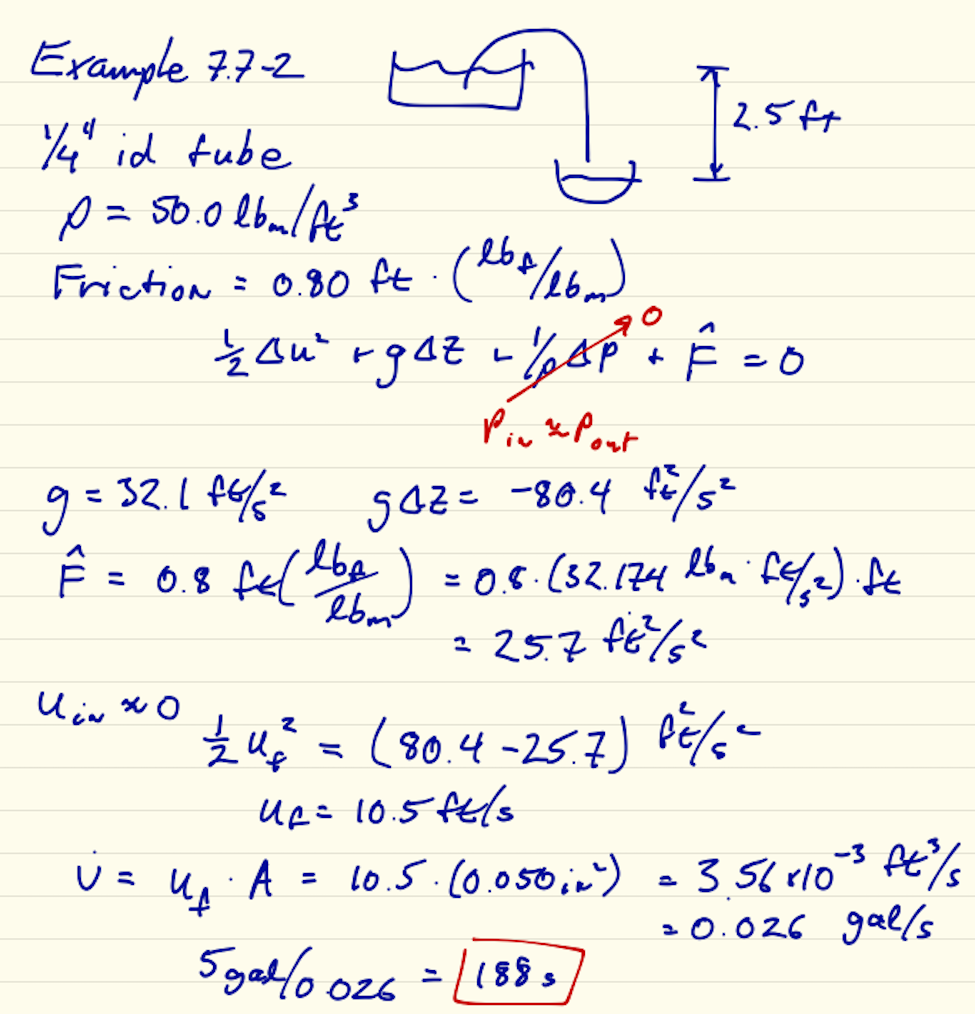 Example 7.7-2
2.5 ft
1/4" id tube
ρ = 50.0 lbm/ft³
Friction = 0.80 ft · (lbf/lbm)
½ Δu² + gΔZ + 1/ρ ΔP + F̂ = 0
0
Pin ≈ Pout
g = 32.1 ft/s² gΔZ = -80.4 ft²/s²
F̂ = 0.8 ft(lbf/lbm) = 0.8 · (32.174 lbm · ft/s²) · ft
= 25.7 ft²/s²
uin ≈ 0
½ uf² = (80.4 - 25.7) ft²/s²
uf = 10.5 ft/s
V̇ = uf · A = 10.5 · (0.050 in²) = 3.56 x 10⁻³ ft³/s
= 0.026 gal/s
5 gal/0.026 = 188 s